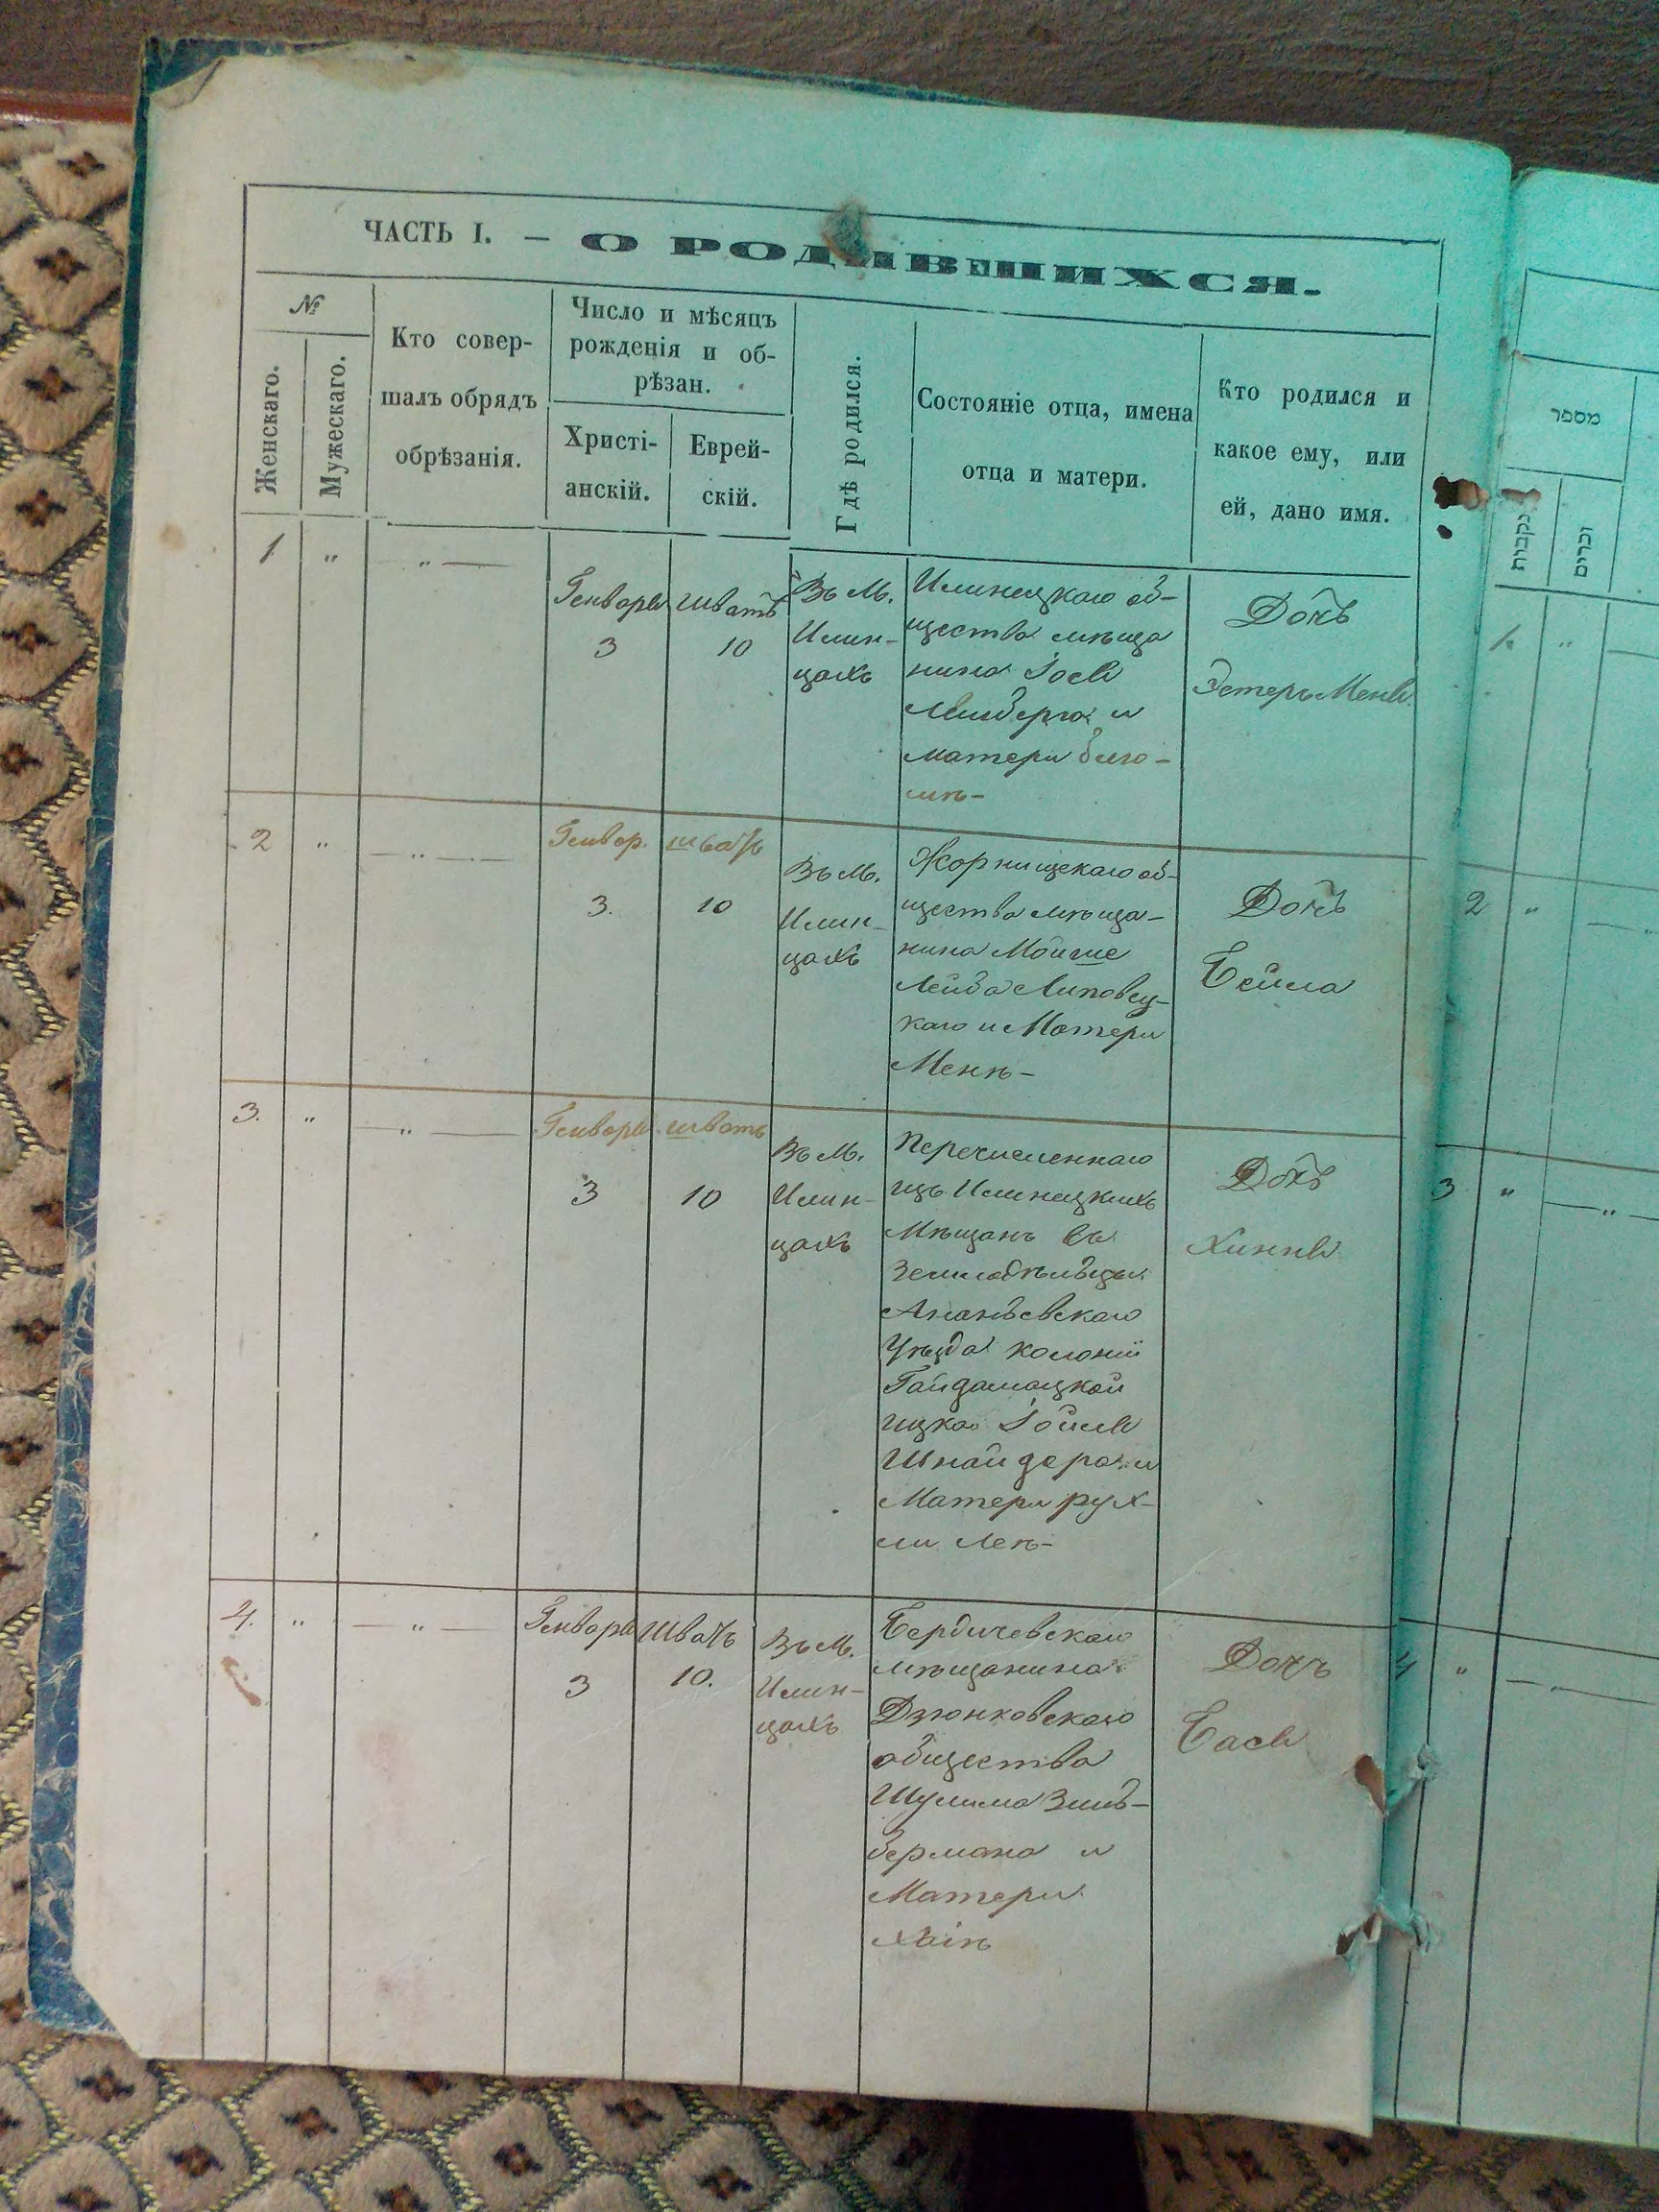 ЧАСТЬ I. — О РОДИВШИХСЯ.
№
Женскаго.
Мужескаго.
Кто совер-
шалъ обрядъ
обрѣзанія.
Число и мѣсяцъ
рожденія и об-
рѣзан.
Христі-
анскій.
Еврей-
скій.
Гдѣ родился.
Состояніе отца, имена
отца и матери.
Кто родился и
какое ему, или
ей, дано имя.
1
"
"
Генваря
3
Шватъ
10
Въ М.
Илин-
цахъ
Илинецкаго об-
щества мѣща
нина Iося
и
матери
Дочь
Эстеръ Меня
2
"
"
Генвар.
3.
шватъ
10
Въ М.
Илин-
цахъ
Жорнищскаго об-
щества мѣща-
нина Мойше
Лейба Липовец-
каго и Матери
Менѣ-
Дочь
Бейла
3.
"
"
Генваря
3
шватъ
10
Въ М.
Илин-
цахъ
Перечисленнаго
изъ Илинецкихъ
Мѣщанъ въ
Земледѣльцы
Ананьевскаго
Уѣзда колоніи
Гайдамацкой
Ицка
Шнайдера и
Матери Рух-
ли Леѣ-
Дочь
Хиння
4.
"
"
Генваря
3
Шватъ
10.
Въ М.
Илин-
цахъ
Бердичевскаго
мѣщанина
Дзюнковскаго
общества
Шулима Зиль-
бермана и
Матери
Хаiѣ
Дочь
Бася
מספר
נקבות
זכרים
1.
"
2
"
3
"
"
4
"